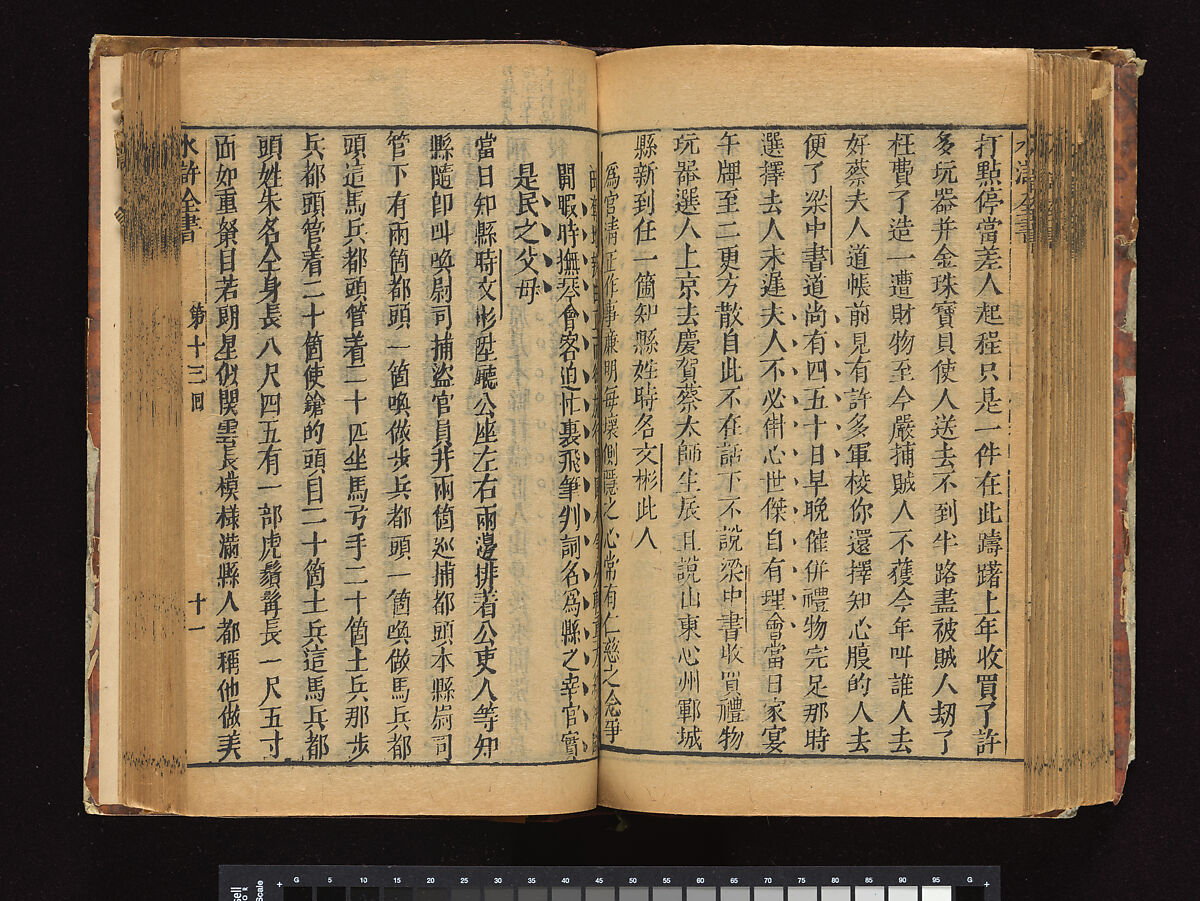 水滸全書
打點停當差人起程只是一件在此躊躇上年收買了許
多玩器并金珠寶貝使人送去不到半路盡被賊人刼了
枉費了這一遭財物至今嚴捕賊人不獲今年呌誰人去
好蔡夫人道帳前見有許多軍校你還擇知心腹的人去
便了梁中書道尚有四五十日早晚催併禮物完足那時
選擇去人未遲夫人不必掛心世傑自有理會當日家宴
午牌至二更方散自此不在話下不說梁中書收買禮物
玩器選人上京去慶賀蔡太師生辰且說山東州鄆城
縣新到任一箇知縣姓時名文彬此人
爲官清正作事廉明每懷惻隱之心常有仁慈之念爭
閒暇時撫琴會客迫忙裏飛筆判詞名爲縣之宰官實
是民之父母
當日知縣時文彬陞廳公座左右兩邊排着公吏人等知
縣隨卽呌喚尉司捕盜官員并兩箇巡捕都頭本縣尉司
管下有兩箇都頭一箇喚做步兵都頭一箇喚做馬兵都
頭這馬兵都頭管着二十匹坐馬弓手二十箇土兵那步
兵都頭管着二十箇使鎗的頭目二十箇土兵這馬兵都
頭姓朱名仝身長八尺四五有一部虎鬚髯長一尺五寸
面如重棗目若朗星似関雲長模樣滿縣人都稱他做美
水滸全書 第十三回 十一
G 5 10 15 20 25 30 35 40 45 50 55 60 65 70 75 80 85 90 95 G